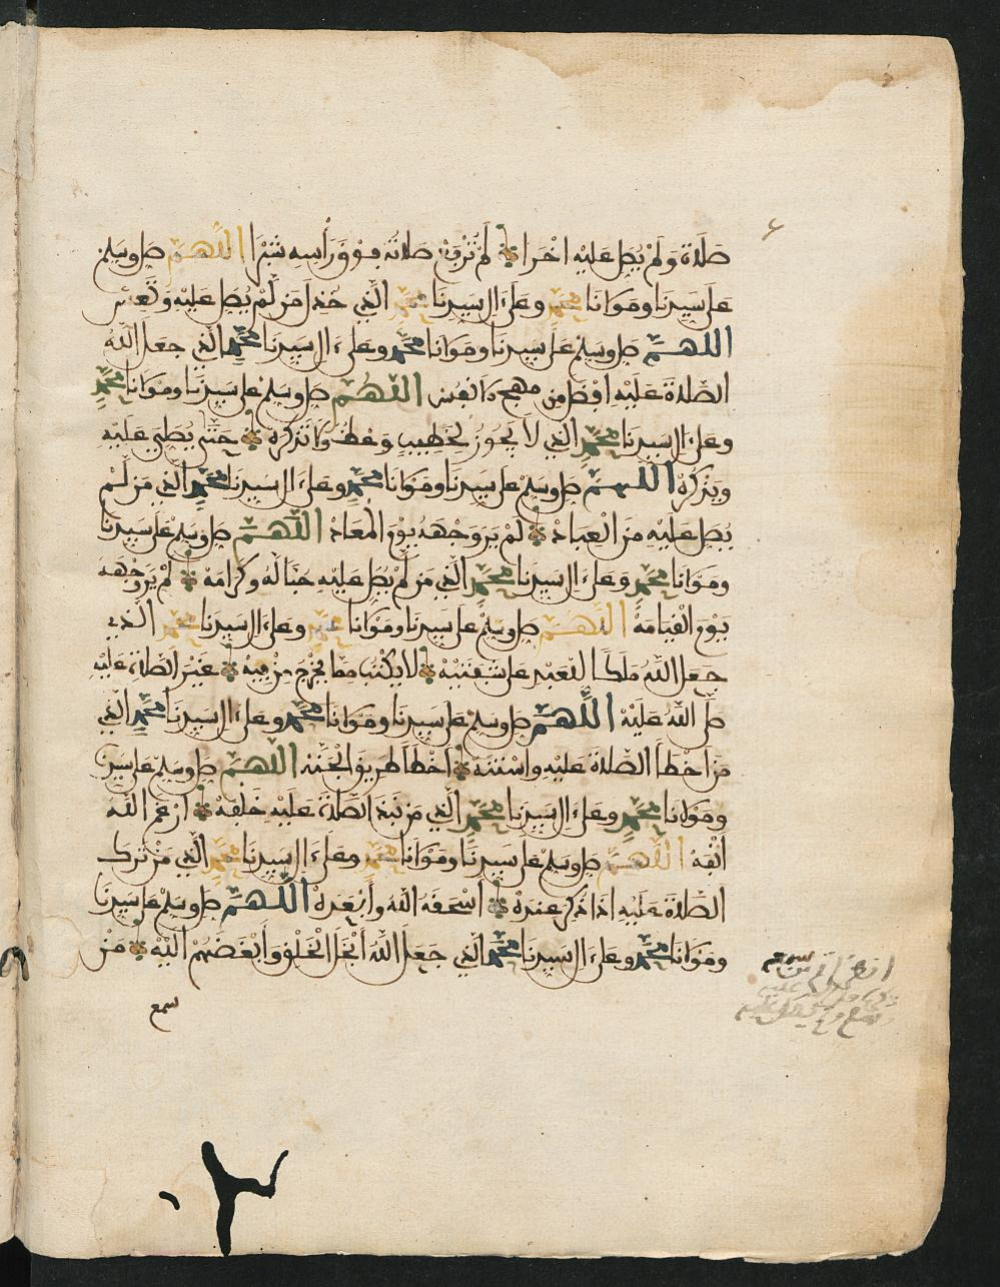 صلاة ولم يصل عليه اخرا لم ترق صلاته فوق رأسه شبرا اللهم صل وسلم
على سيدنا ومولانا محمد وعلى ءال سيدنا محمد الذي خذل من لم يصل عليه وتعس
اللهم صل وسلم على سيدنا ومولانا محمد وعلى ءال سيدنا محمد الذي جعل الله
الصلاة عليه افضل من مهج الانفس اللهم صل وسلم على سيدنا ومولانا محمد
وعلى ءال سيدنا محمد الذي لا يجوز لخطيب وعظ ولا تذكره حتى يصلي عليه
ويذكره اللهم صل وسلم على سيدنا ومولانا محمد وعلى ءال سيدنا محمد الذي من لم
يصل عليه من العباد لم ير وجهه يوم المعاد اللهم صل وسلم على سيدنا
ومولانا محمد وعلى ءال سيدنا محمد الذي من لم يصل عليه حبا له وكرامة لم ير وجهه
يوم القيامة اللهم صل وسلم على سيدنا ومولانا محمد وعلى ءال سيدنا محمد الذي
جعل الله ملكا للعبد على شفتيه لا يكتب مما يخرج من فيه غير الصلاة عليه
صلى الله عليه اللهم صل وسلم على سيدنا ومولانا محمد وعلى ءال سيدنا محمد الذي
من اخطأ الصلاة عليه واسنته أخطأ طريق الجنة اللهم صل وسلم على سيدنا
ومولانا محمد وعلى ءال سيدنا محمد الذي من نبذ الصلاة عليه خلفه ارغم الله
أنفه اللهم صل وسلم على سيدنا ومولانا محمد وعلى ءال سيدنا محمد الذي من ترك
الصلاة عليه اذا ذكر عنده أسحقه الله وأبعده اللهم صل وسلم على سيدنا
ومولانا محمد وعلى ءال سيدنا محمد الذي جعل الله أبخل الخلق وأبغضهم اليه من
سمع